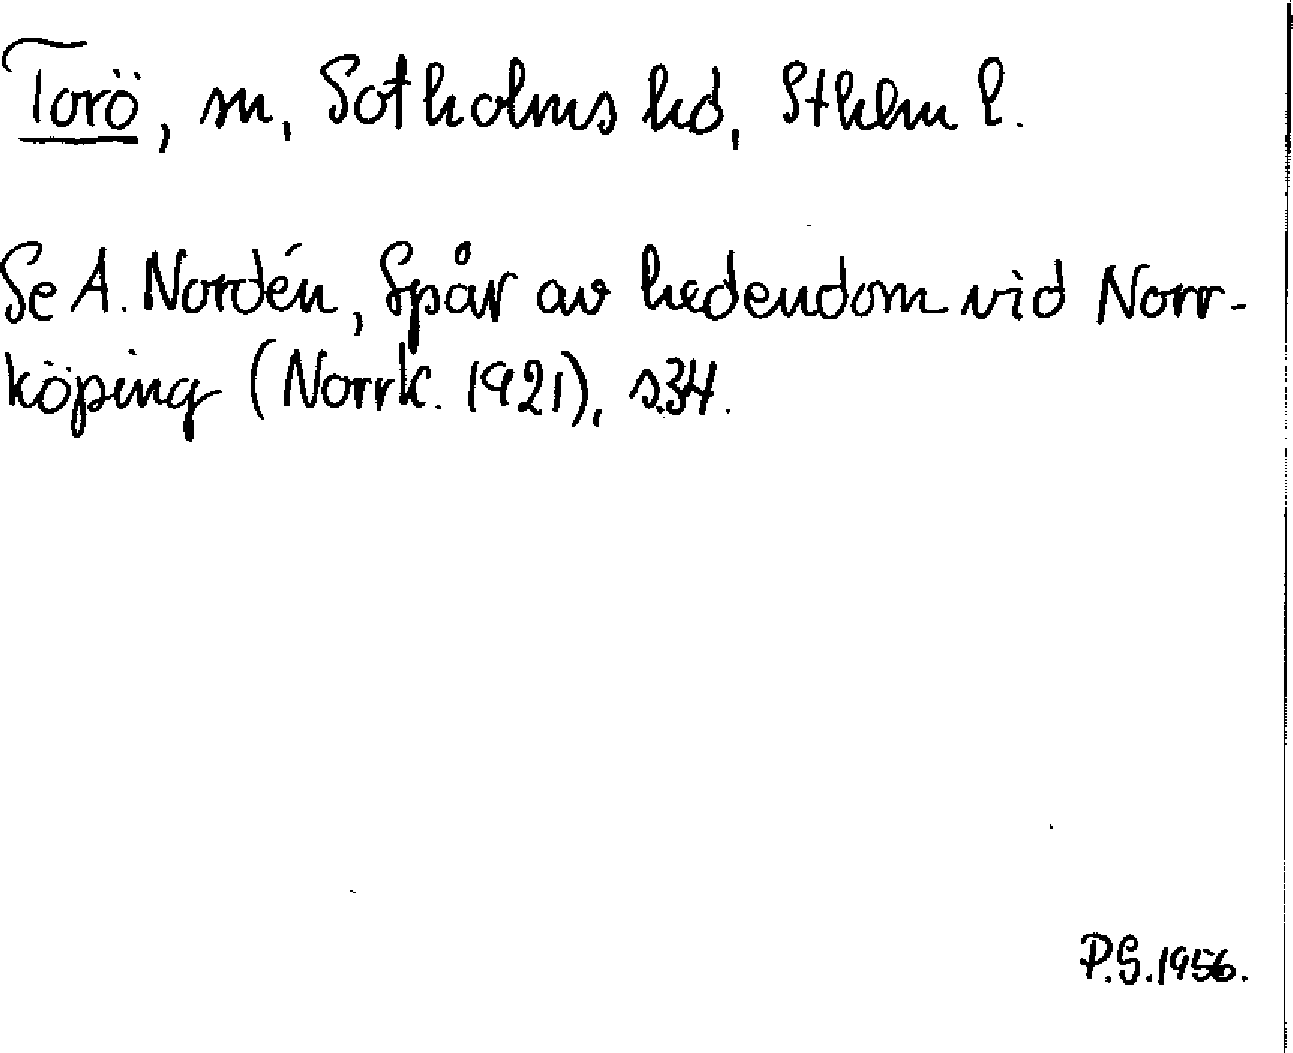 Torö, sn, Sotholms hd, Sthlm l.
Se A. Nordén, Spår av hedendom vid Norr-
köping (Norrk. 1921), s.34.
P.G.1956.